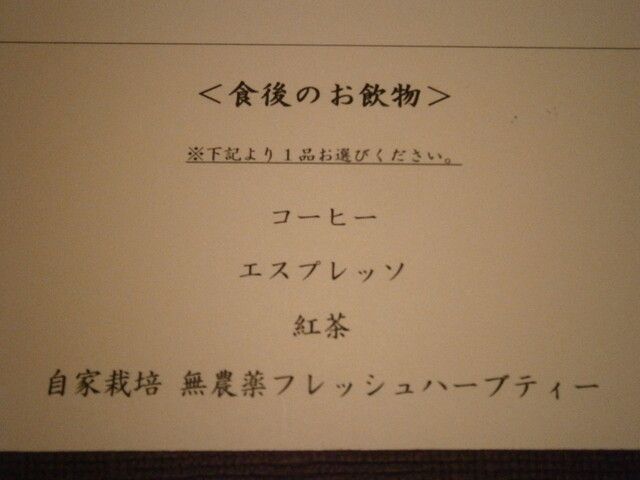 ＜食後のお飲物＞
※下記より１品お選びください。
コーヒー
エスプレッソ
紅茶
自家栽培 無農薬フレッシュハーブティー